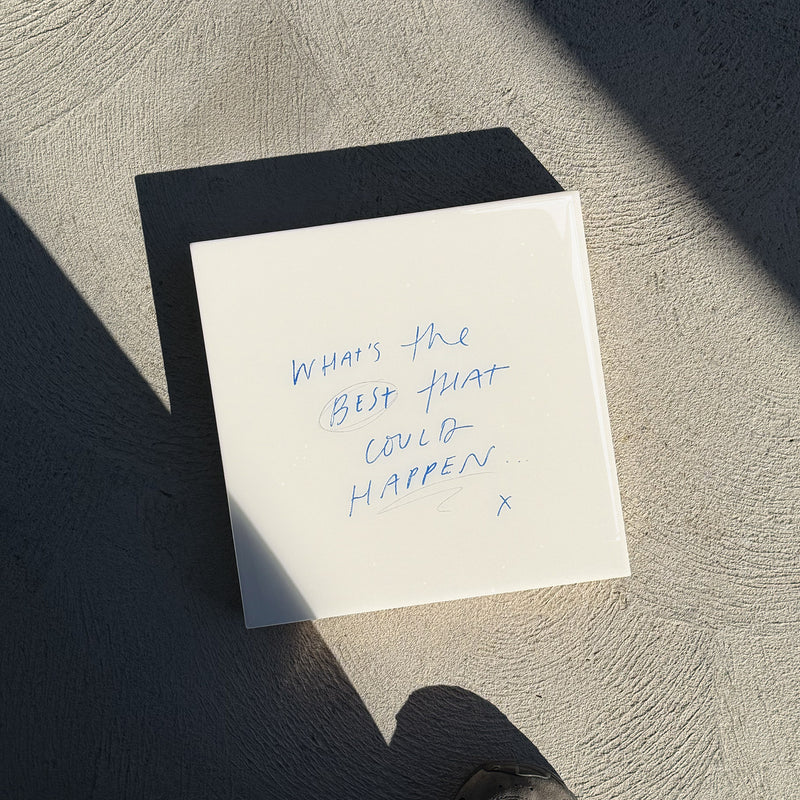 WHAT'S the
BEST tHAt
COULD
HAPPEN...
x